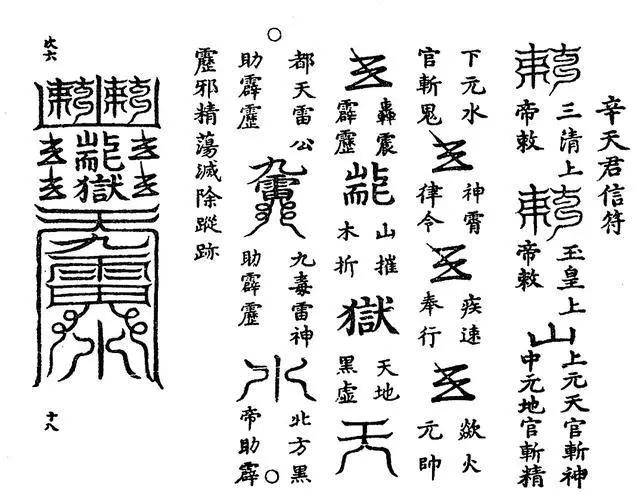 辛天君信符
敕 三清上帝敕 敕 玉皇上帝敕 山 上元天官斬神中元地官斬精
下元水官斬鬼 神霄律令 疾速奉行 歘火元帥
轟震霹靂 山摧木折 獄 天地黑虛 天
都天雷公助霹靂 九毒雷神助霹靂 水 北方黑帝助霹
靂邪精蕩滅除蹤跡
十八